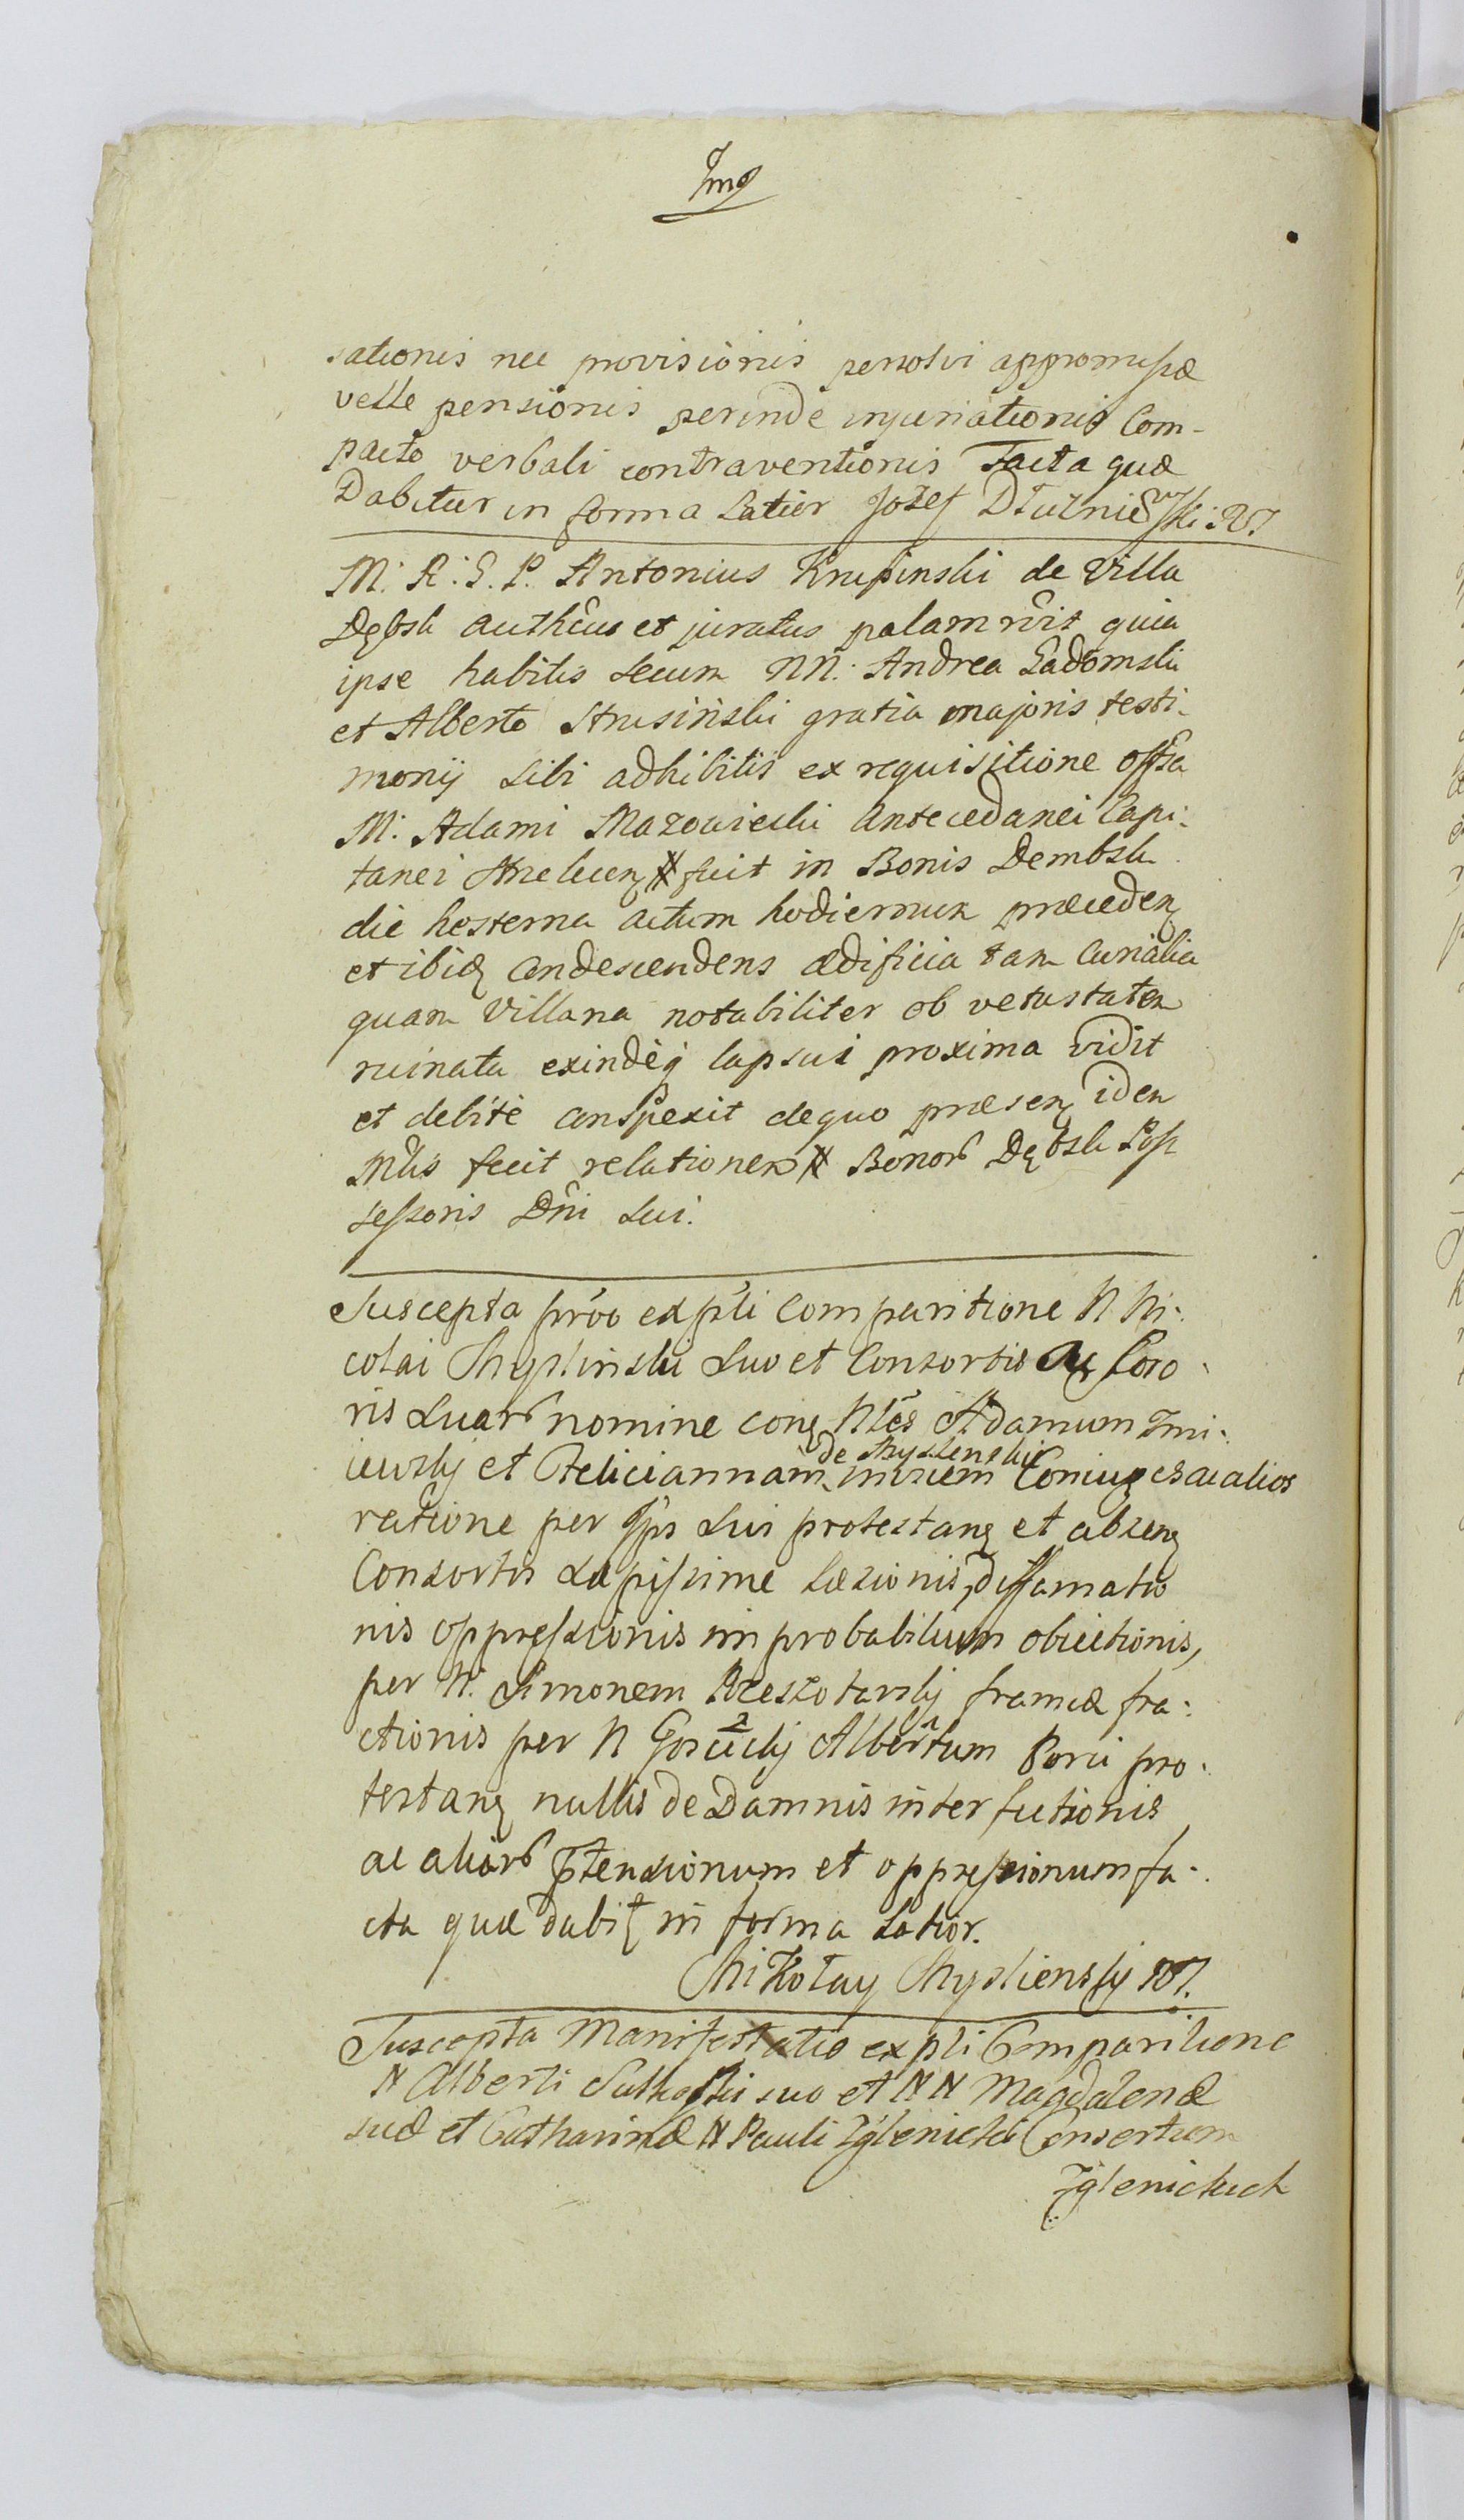 Img
sationis nec provisionis persolvi appromissæ
velle pensionis perinde injuriationis Com-
pacto verbali contraventionis Facta quæ
Dabitur in forma Latior Jozef Dłużniewski: R7
M: R: G. P. Antonius Krupinski de Villa
Dębsk authēus et juratus palam rēvit quia
ipse habitis secum NN: Andrea Ładomski
et Alberto Strusiński gratia majoris testi-
monij sibi adhibitis ex requisitione offsa
M: Adami Mazowiecki Antecedanei Capi:
tanei Strzelcen fuit in Bonis Dembsk
die hesterna actum hodiernum præceden
et ibid condescendens ædificia tam Curialia
quam Villana notabiliter ob vetustatem
ruinata exindeq lapsui proxima vidit
et debitè conspexit de quo præsen idem
Mlis fecit relationem Bonor Dębsk Pos
sessoris Dni sui.
Suscepta prōo ex pli Comparitione N Ni:
colai Myslinski suo et Consortis ac Soro
ris suar nomine con Nles Adamum
et Feliciannam de Myslenskie Coniuges ac alios
ratione per Ips sui protestan et absen
Consortis sæpissime Læsionis, diffamatio
nis oppressionis improbabilium obiectionis,
per N. Simonem Brzeskotarskij frameæ fra:
ctionis per N Goscickij Albertum Porci pro:
testan nullis de Damnis interfectionis
ac alior ptensionum et oppressionum fa:
cta quæ dabit in forma Latior.
Mikołay Myslienskij R7.
Suscepta Manifestatio ex pli Comparitione
N Alberti suo et NN Magdalenæ
suæ et Catharinæ N Pauli Zglenicki Consortum
Zglenickich